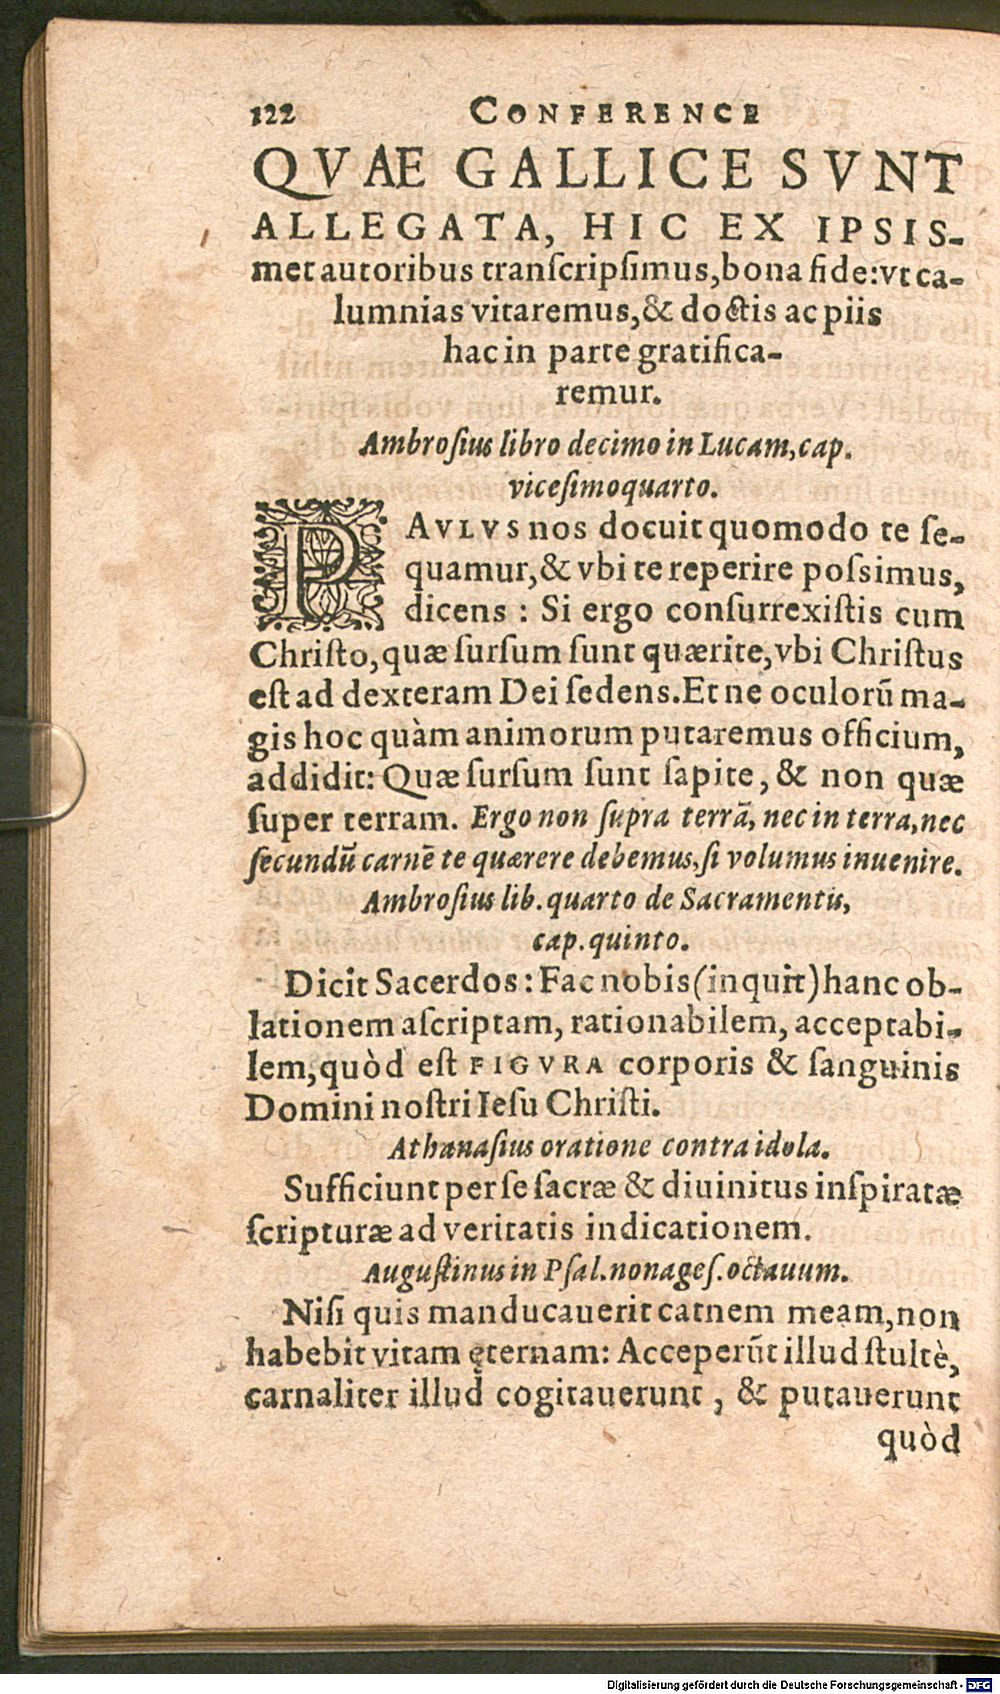 122 CONFERENCE
QVAE GALLICE SVNT
ALLEGATA, HIC EX IPSIS-
met autoribus tranſcripſimus, bona fide: vt ca-
lumnias vitaremus, & doctis ac piis
hac in parte gratifica-
remur.
Ambroſius libro decimo in Lucam, cap.
viceſimoquarto.
PAVLVS nos docuit quomodo te ſe-
quamur, & vbi te reperire poſsimus,
dicens : Si ergo conſurrexiſtis cum
Chriſto, quæ ſurſum ſunt quærite, vbi Chriſtus
eſt ad dexteram Dei ſedens. Et ne oculorū ma-
gis hoc quàm animorum putaremus officium,
addidit: Quæ ſurſum ſunt ſapite, & non quæ
ſuper terram. Ergo non ſupra terrā, nec in terra, nec
ſecundū carnē te quærere debemus, ſi volumus inuenire.
Ambroſius lib. quarto de Sacramentis,
cap. quinto.
Dicit Sacerdos: Fac nobis (inquit) hanc ob-
lationem aſcriptam, rationabilem, acceptabi-
lem, quòd eſt FIGVRA corporis & ſanguinis
Domini noſtri Ieſu Chriſti.
Athanaſius oratione contra idola.
Sufficiunt per ſe ſacræ & diuinitus inſpiratæ
ſcripturæ ad veritatis indicationem.
Auguſtinus in Pſal. nonageſ. octauum.
Niſi quis manducauerit carnem meam, non
habebit vitam ęternam: Acceperūt illud ſtultè,
carnaliter illud cogitauerunt, & putauerunt
quòd
Digitalisierung gefördert durch die Deutsche Forschungsgemeinschaft - DFG